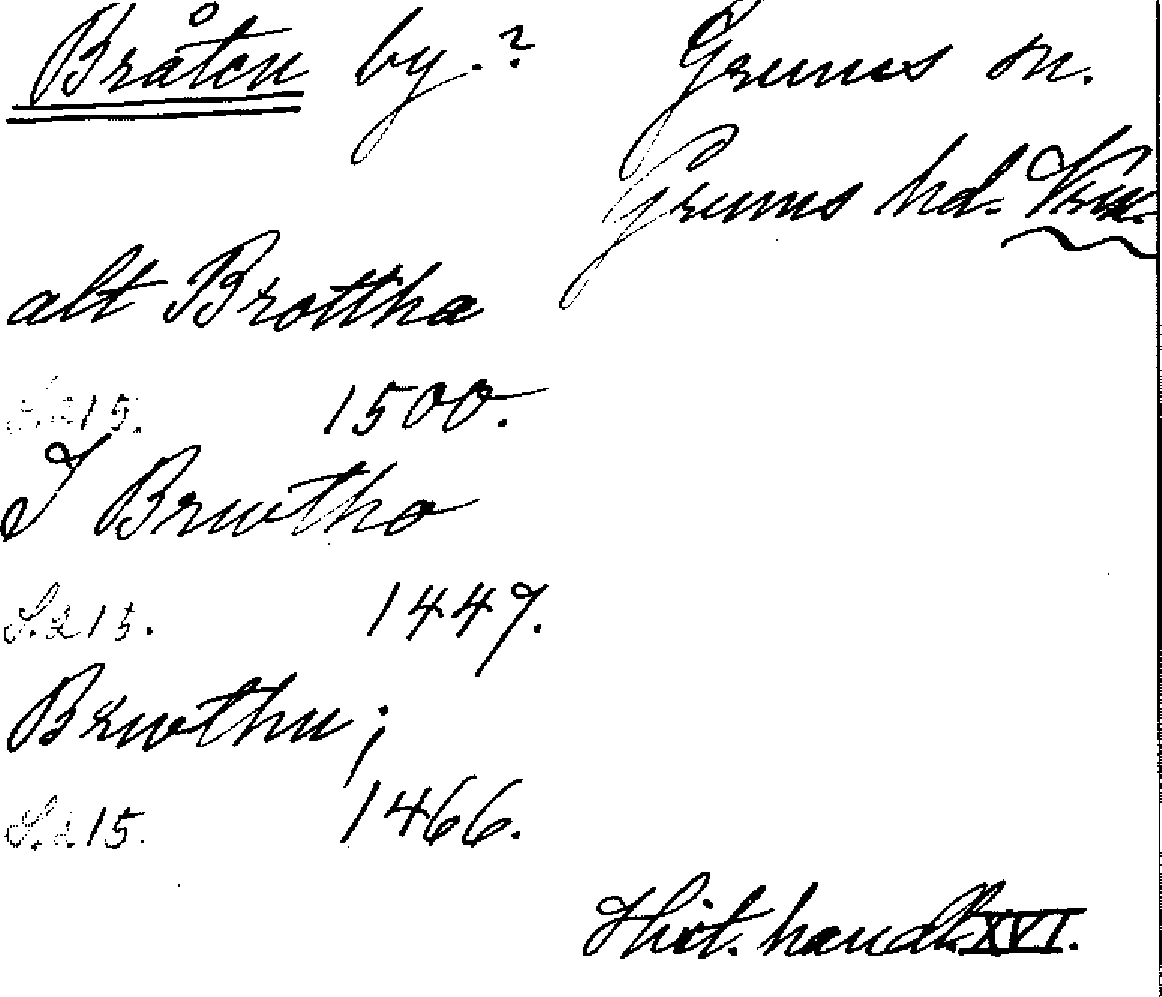 Bråten by.? Grums sn.
Grums hd. Vrm.
alt Brottha
S. 215. 1500.
I Brwtho
S. 215. 1447.
Brwthu;
S. 215. 1466.
Hist. handl. XVI.